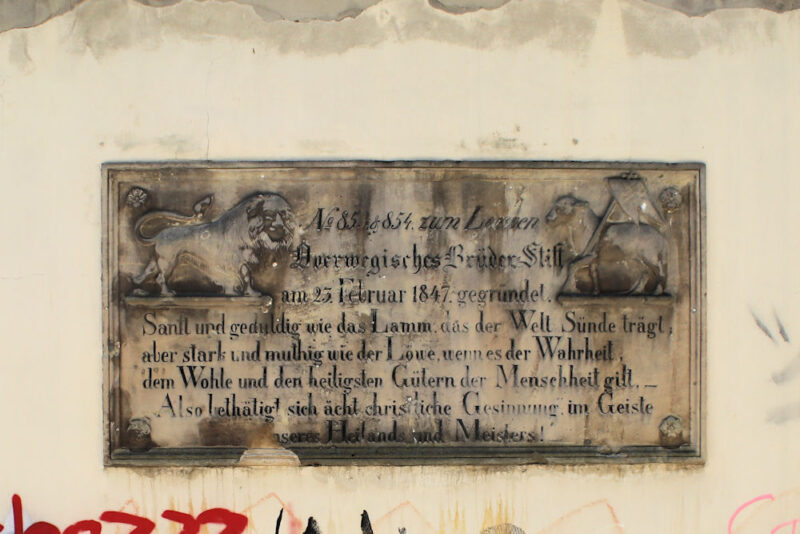 No 85 & 854. zum
Overwegisches Brüder-Stift
am 23. Februar 1847. gegründet.
Sanft und geduldig wie das Lamm, das der Welt Sünde trägt,
aber stark und muthig wie der Löwe, wenn es der Wahrheit,
dem Wohle und den heiligsten Gütern der Menschheit gilt. _
Also bethätigt sich ächt christliche Gesinnung im Geiste
unseres Heilands und Meisters!